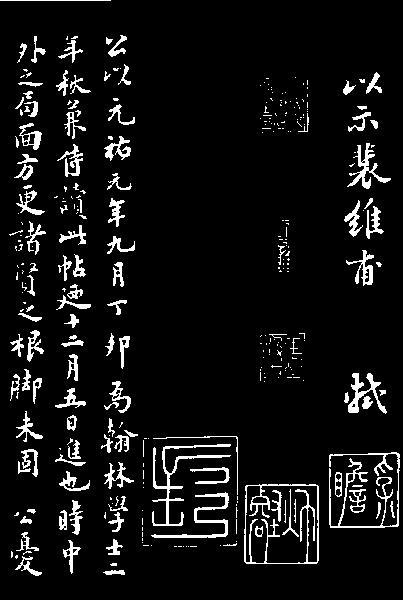 以示裴維甫 軾
公以元祐元年九月丁卯為翰林學士二
年秋兼侍讀此帖廼十二月五日進也時中
外之局面方更諸賢之根脚未固 公憂